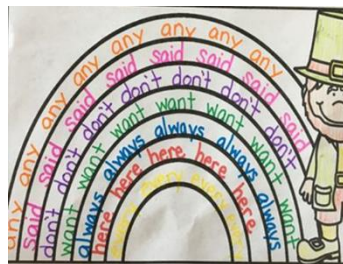 any any any any any any any any
said said said said said said said said
don't don't don't don't don't don't don't
want want want want want want want
always always always always always
here here here here here
every every every every